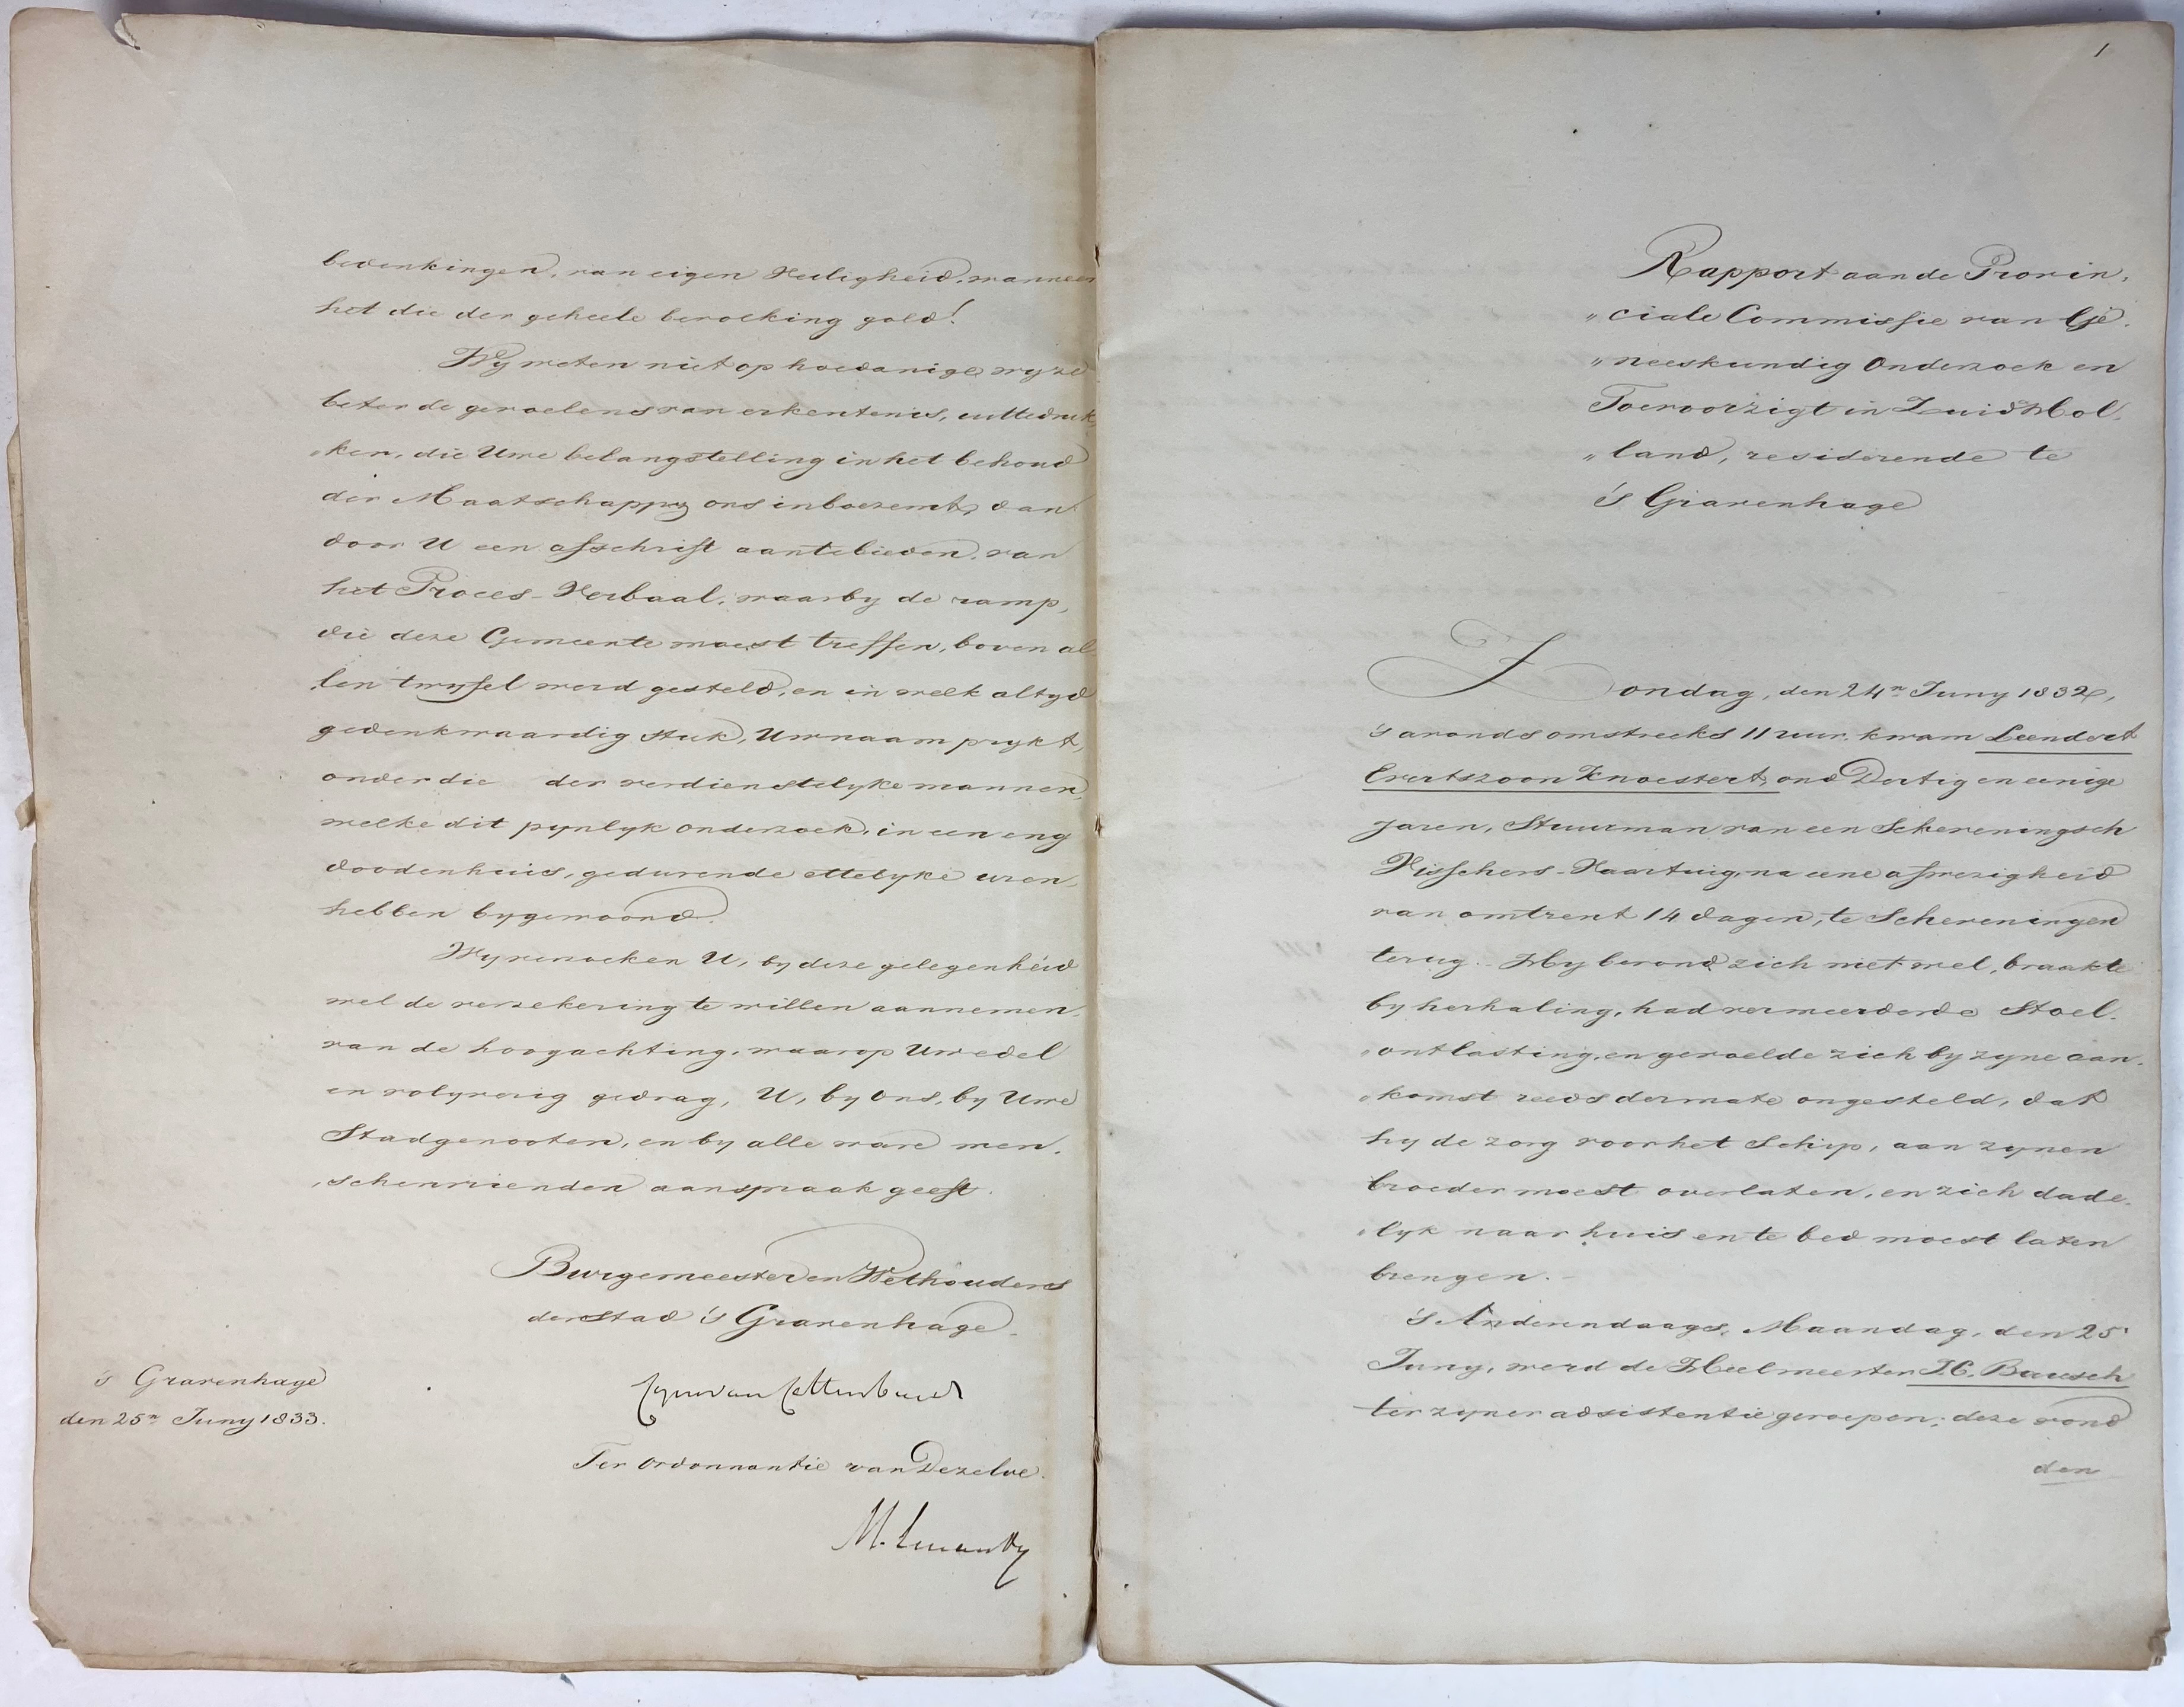 bedenkingen, van eigen Veiligheid, wanneer
het die der geheele bevolking gold!
Wy weten niet op hoedanige wyze
beter de gevoelens van erkentenis, uittedruk„
„ken, die Uwe belangstelling in het behoud
der Maatschappy ons inboezemt, dan
door U een afschrift aantebieden, van
het Proces-Verbaal, waarby de ramp,
die deze Gemeente moest treffen, boven al„
„len twyfel werd gesteld, en in welk altyd
gedenkwaardig stuk, Uw naam prykt,
onder die der verdienstelyke mannen,
welke dit pynlyk onderzoek, in een eng
doodenhuis, gedurende ettelyke uren,
hebben bygewoond.
Wy verzoeken U, by deze gelegenheid
wel de verzekering te willen aannemen,
van de hoogachting, waarop Uw edel
en volyverig gedrag, U, by ons, by Uwe
Stadgenooten, en by alle ware men„
„schenvrienden aanspraak geeft.
Burgemeester en Wethouders
der Stad 's Gravenhage.
's Gravenhage
den 25n Juny 1833.
Ter ordonnantie van Dezelve.
1
Rapport aan de Provin„
„ciale Commissie van Ge„
„neeskundig Onderzoek en
Toevoorzigt in Zuid Hol„
„land, residerende te
's Gravenhage
Zondag, den 24n Juny 1832,
's avonds omstreeks 11 uur, kwam Leendert
Evertszoon Knoestert, oud Dertig en eenige
jaren, Stuurman van een Schevening sch
Visschers-Vaartuig, na eene afwezigheid
van omtrent 14 dagen, te Scheveningen
terug. Hy bevond zich niet wel, braakte
by herhaling, had vermeerderde Stoel„
„ontlasting, en gevoelde zich by zyne aan„
„komst reeds dermate ongesteld, dat
hy de zorg voor het Schip, aan zynen
broeder moest overlaten, en zich dade„
„lyk naar huis en te bed moest laten
brengen.
's Anderendaags, Maandag, den 25n
Juny, werd de Heelmeester J.C. Bausch
ter zyner adsistentie geroepen; deze vond
den